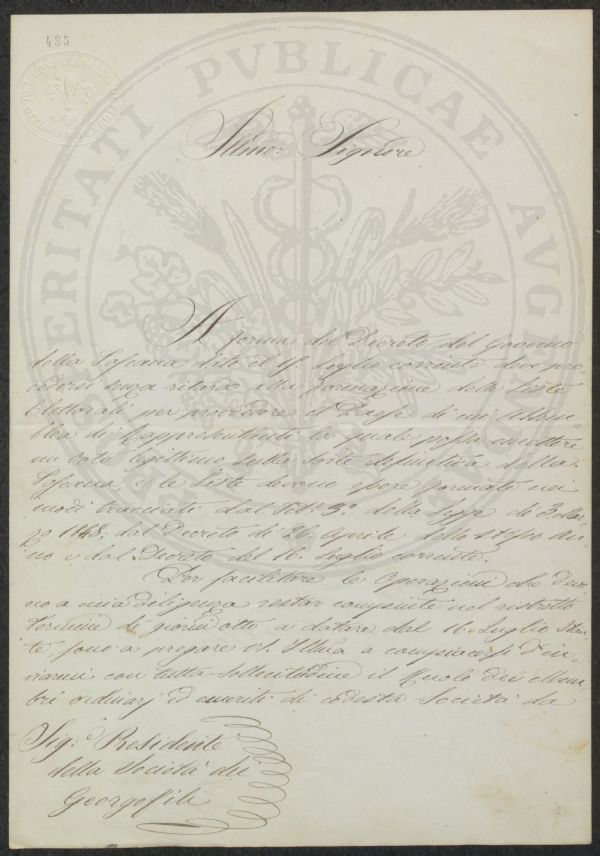 485
PROSPERITATI PUBLICAE AUGENDAE
Illmo: Signore
A forma del Decreto del Governo
della Toscana dato il 15 Luglio corrente deve pro-
cedersi senza ritardo alla formazione delle Liste
Elettorali per provvedere al Paese di un'Assem-
blea di Rappresentanti la quale possa emettere
un voto legittimo sulla sorte definitiva della
Toscana, e le Liste devono essere formate nei
modi tracciati dal Tit: 3: della Legge de 3 Mar-
zo 1848; dal Decreto di 26. Aprile dello stesso an-
no e dal Decreto del 16. Luglio corrente.
Per facilitare le Operazioni che devo-
no a mia diligenza restar compiute nel ristretto
termine di giorni otto a datare dal 16. Luglio stan-
te sono a pregare V.S. Illma a compiacersi d'in-
viarmi con tutta sollecitudine il Ruolo dei Mem-
bri ordinarj ed emeriti di codesta Società da
Sig: Presidente
della Società dei
Georgofili